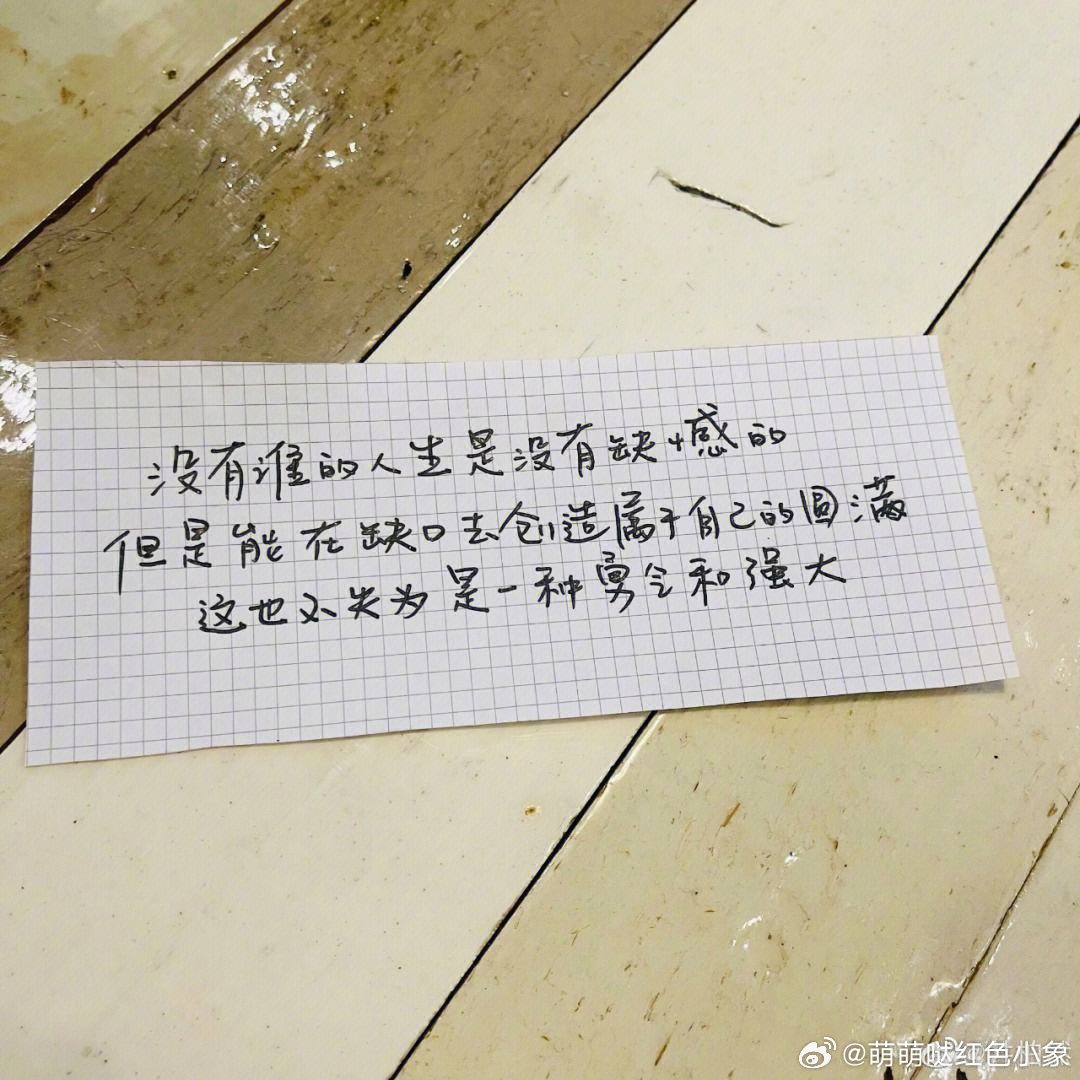 没有谁的人生是没有缺憾的
但是能在缺口去创造属于自己的圆满
这也不失为是一种勇气和强大
@萌萌哒红色小象